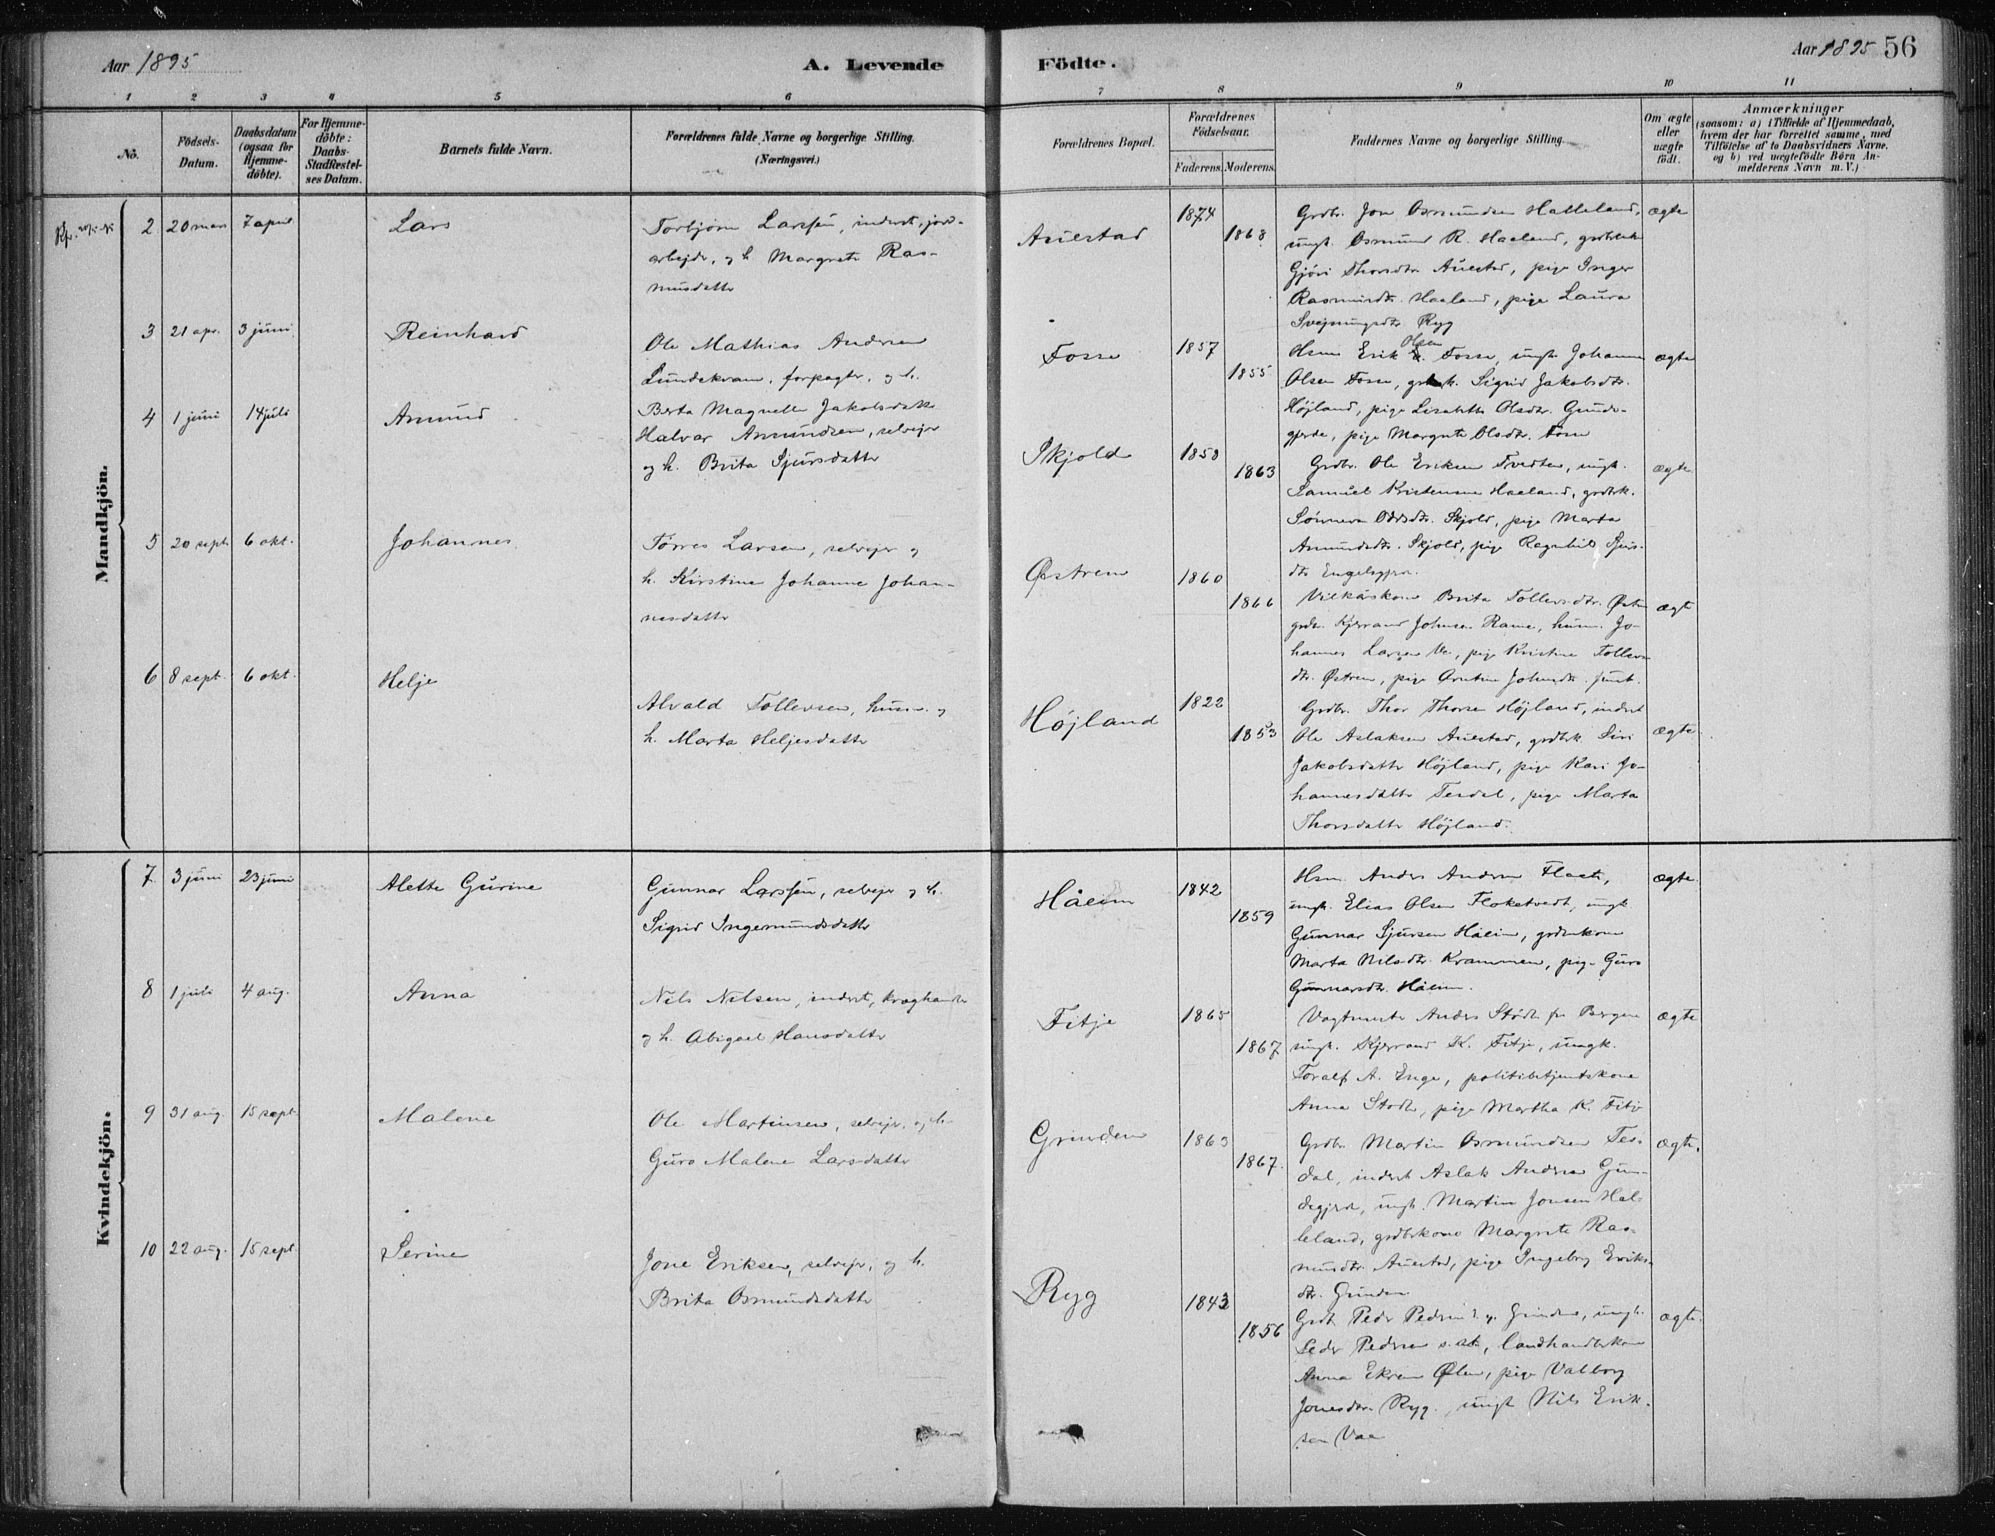 Aar 1895
A. Levende
Födte.
Aar 1895 56
1 2 3 4 5 6 7 8 9 10 11
No.
Födsels-
Datum.
Daabsdatum
(ogsaa for
Hjemme-
döbte).
For Hjemme-
döbte:
Daabs-
Stadfæstel-
ses Datum.
Barnets fulde Navn.
Forældrenes fulde Navne og borgerlige Stilling.
(Næringsvei.)
Forældrenes Bopæl.
Forældrenes
Födselsaar.
Faderens. Moderens.
Faddernes Navne og borgerlige Stilling.
Om ægte
eller
uægte
födt.
Anmærkninger
(saasom: a) i Tilfælde af Hjemmedaab,
hvem der har forrettet samme, med
Tilföielse af to Daabsvidners Navne,
og b) ved uægtefödte Börn An-
melderens Navn m. V.)
Mandkjön.
2 20 mars 7 april Lars
Torbjörn Larssen, inderst, jord-
arbejder, og h. Margrete Ras-
musdatter
Auestad
1874
1868
Grdbr. Jon Osmundsen Halleland,
ungk. Osmund R. Haaland,
Gjöri Thorsdtr Auestad, pige Inger
Rasmusdtr. Haaland, pige Laura
Svejnungsdtr Ryg
ægte
3 21 apr. 3 juni Reinhard
Ole Mathias Andersen
forpagter, og h.
Berta Magnella Jakobsdatter
Fosse
1857
1855
Olsen
Hsm Erik Fosse, ungk Johannes
Olsen Fosse, Sigrid Jakobsdtr.
Höjland, pige Lisabeth Olsdtr. Gunde-
gjerde, pige Margrete Olsdtr. Fosse
ægte
4 1 juni 14 juli Amund
Halvar Amundsen, selvejer
og h. Brita Sjursdatter
Skjold
1858
1863
Grdbr. Ole Eriksen Tvedten, ungk.
Samuel Kristensen Haaland, grdbrk.
Oddsdtr. Skjold, pige Marta
Amundsdtr. Skjold, pige Ragnhild Sjurs-
dtr
ægte
5 20 sept 6 okt. Johannes
Torres Larsen, selvejer og
h. Kirstine Johanne Johan-
nesdatter
Østrem
1860
1866
Vilkårskone Brita Tollevsdtr. Østrem
Kjerrand Johnsen Rame, husm. Jo-
hannes Larsen pige Kristine Tollevs-
dtr. Østrem, pige
ægte
6 8 sept. 6 okt. Helje
Alvald Tollevsen, husm. og
h. Marta Heljesdatter
Höjland
1822
1853
Grdbr. Thor Thorsen Höjland, inderst
Ole Aslaksen Auestad, grdbrk. Siri
Jakobsdatter Höjland, pige Kari Jo-
hannesdatter Tesdal, pige Marta
Thorsdatter Höjland.
ægte
Kvindekjön.
7 3 juni 23 juni Alette Gurine
Gunnar Larssen, selvejer og h.
Sigrid Ingemundsdatter
Håeim
1842
1859
Hsm. Anders Andersen
ungk. Elias Olsen Floketvedt, ungk
Gunnar Sjursen Håeim,
Marta Nilsdtr. Krammen, pige Guro
Gunnarsdtr. Håeim.
ægte
8 1 juli 4 aug. Anna
Nils Nilsen, inderst,
og h. Abigael Hansdatter
Fitje
1865
1867
Anders Stödt fra Bergen
ungk. Kjerrand K. Fitje, ungk.
Toralf A. Enge, politibetjentskone
Anna Stödt, pige Martha K. Fitje
ægte
9 31 aug. 15 sept Malene
Ole Martinsen, selvejer, og h.
Guro Malene Larsdatter
Grinden
1863
1867.
Grdbr. Martin Osmundsen Tes-
dal, inderst Aslak Andersen Gun-
degjerde, ungk. Martin Jonsen Hal-
leland, grdbrkone Margrete Ras-
musdtr. Auestad, pige Ingeborg Eriks-
dtr. Grinden
ægte.
10 22 aug. 15 sept Serine
Jone Eriksen, selvejer, og h.
Brita Osmundsdatter
Ryg
1843
1856
Grdb Peder Pedersen Grinden, ungk.
Peder Pedersen s.st., landhandlerkone
Anna Ekrene Ølen, pige Valborg
Jonesdtr Ryg, ungk Nils Erik-
sen Vaa
ægte.